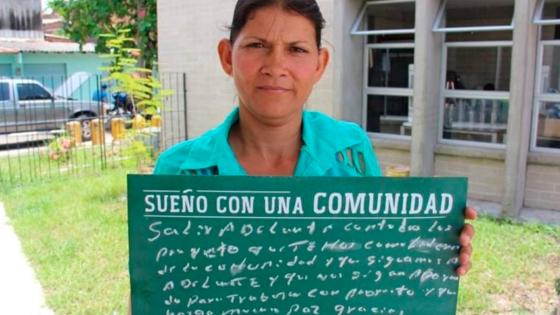 SUEÑO CON UNA COMUNIDAD
Salir ADelante con todos los
proyectos que TeNemos como líderes
de la comunidad y que sigamos A
ADelante y que nos sigan Apoyan
do para Trabajar con proyectos y que
haga mucha Paz gracias